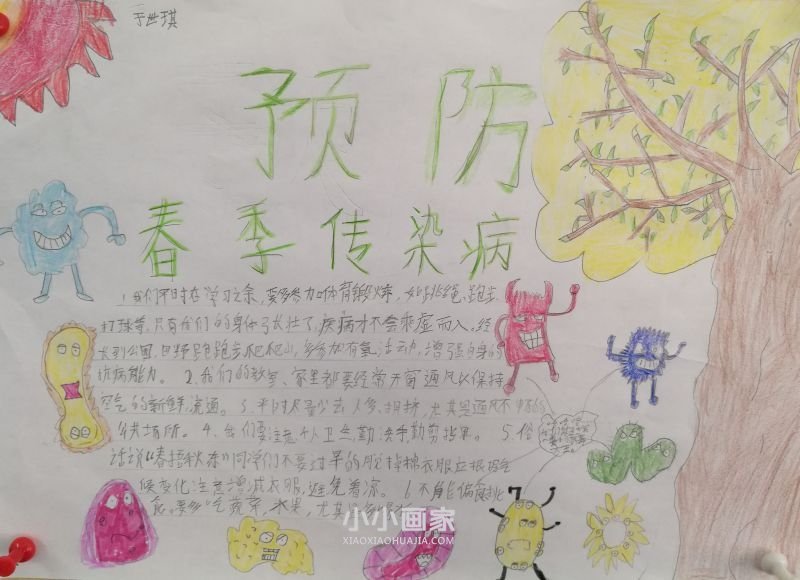 于世琪
预防
春季传染病
1.我们平时在学习之余,要多参加体育锻炼,如跳绳、跑步、
打球等,只有我们的身体强壮了,疾病才不会乘虚而入。经
去到公园、田野里跑步爬爬山,多参加有氧活动,增强自身的
抗病能力。 2.我们的教室、家里都要经常开窗通风以保持
空气的新鲜流通。3.平时尽量少去人多、拥挤,尤其是通风不
公共场所。 4.我们要注意个人卫生,勤洗手,勤剪指甲。 5.俗
话说“春捂秋冻”同学们不要过早的脱掉棉衣服应根据气
候变化注意增减衣服,避免着凉。 6.不能偏食挑
食,要多吃蔬菜,水果,尤其
小小画家
XIAOXIAOHUAJIA.COM